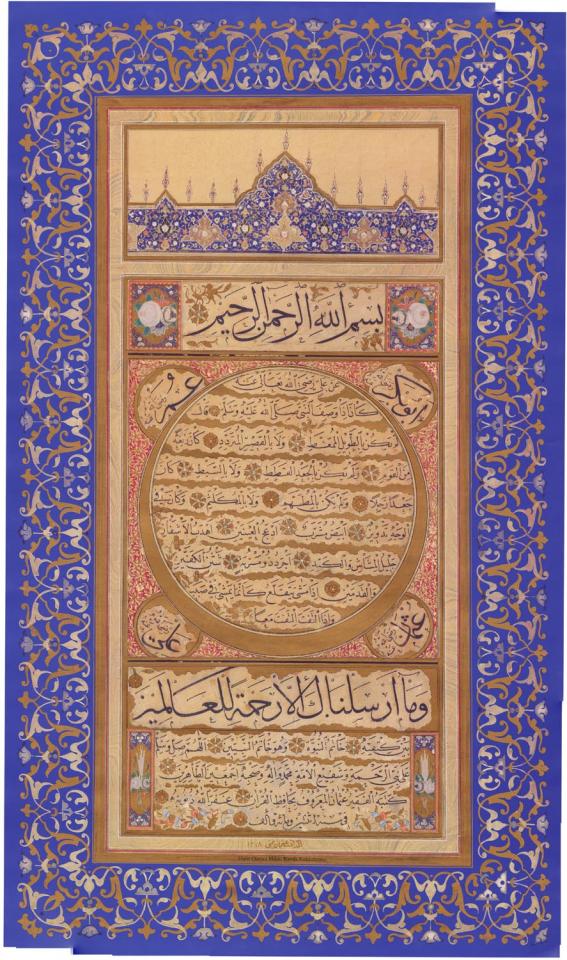 بسم الله الرحمن الرحيم
ابوبكر
عمر
عن علي رضي الله تعالى عنه
كان اذا وصف النبي صلى الله عليه وسلم قال
لم يكن بالطويل الممغط ولا بالقصير المتردد كان ربعة
من القوم ولم يكن بالجعد القطط ولا بالسبط كان
جعدا رجلا ولم يكن بالمطهم ولا بالمكلثم وكان في
الوجه تدوير ابيض مشرب ادعج العينين اهدب الاشفار
جليل المشاش والكتد اجرد ذو مسربة شثن الكفين
والقدمين اذا مشى يتقلع كانما يمشي في صبب
واذا التفت التفت معا
عثمان
علي
وما ارسلناك الا رحمة للعالمين
بين كتفيه خاتم النبوة وهو خاتم النبيين اللهم صل وسلم
على نبي الرحمة وشفيع الامة محمد واله وصحبه اجمعين الطاهرين
كتبه الفقير عثمان المعروف بحافظ القرآن غفر الله ذنوبه
في سنة ومائة والف